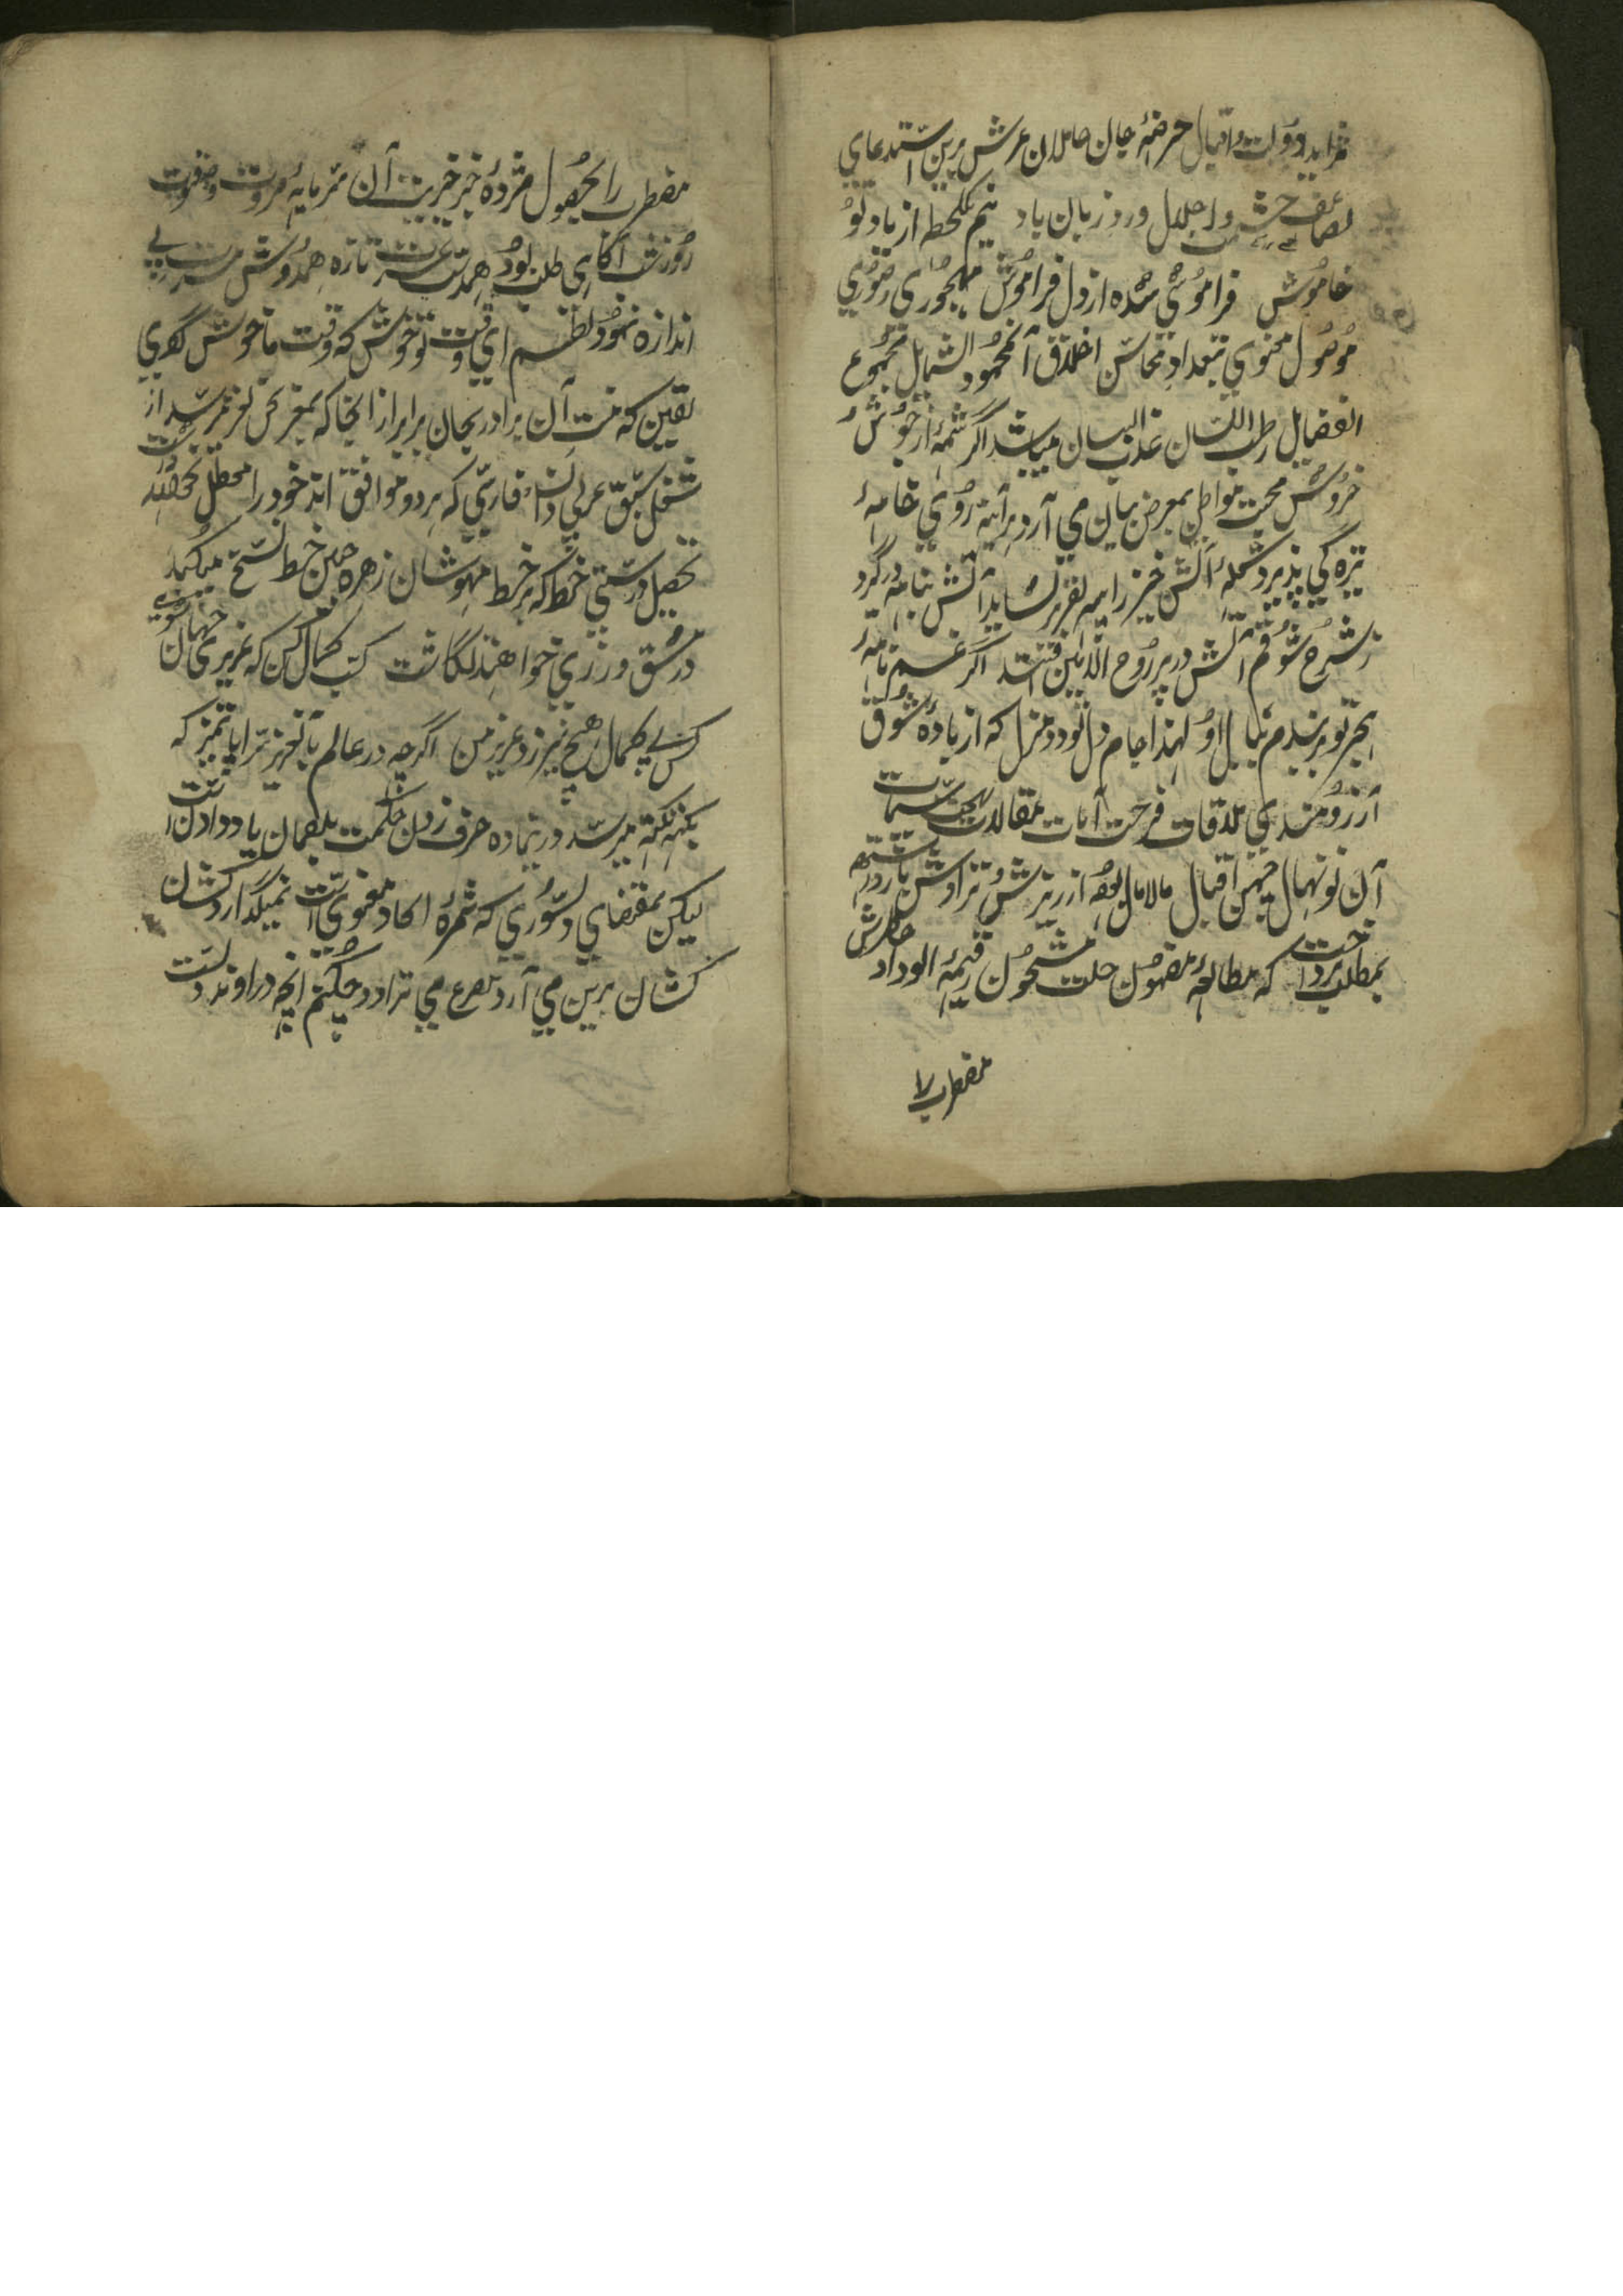 تزاید دولت و اقبال حرضهٔ جان حاملان عرش برین استدعای
تضاعف حشمت و اجلال ورد زبان باد نیم یکلحظه از یاد تو
خاموش فراموشی شده از دل فراموش مهجوری صوری
موصول معنوی بتعداد محاسن اخلاق آنمحمود الشمایل مجموع
الفضایل رطب اللسان عذب البیان میباشد اگر شمهٔ از جوش
خروش محبت مواطن بمعرض بیان می آرد هرآینه روی خامه
تیره گی پذیرد شعلهٔ آتش خیز را به تقریر نشاید آتش بنامه درگیرد
ز شرح شوقم آتش در پر روح الامین افتد اگر غم نامهٔ
هجر تو بربندم ببال او لهذا جام دل تودد منزل که از بادهٔ شوق
آرزومندی ملاقات فرحت آیات بمقالات بهجت سمات
آن نونهال چمن اقبال مالامال بوده از ریزش و تراوش باز داشته
بمطلب پرداخت که مطالعهٔ مضمون حلت مشحون رقیمهٔ الوداد خاطرش
مضطرب را
مضطرب را بحصول مژدهٔ خبر خیریت آن سرمایهٔ مروت و فتوت
روز شب آگاهی طلب بود همدست عشرت تازه همدوش مسرت بی
اندازه نمود نظم ای وقت تو خوش که وقت ما خوش کردی
یقین که منت آن برادر بجان برابر از انجا که بمغز سخن نغز میرسد از
شغل سبق عربی و انشاء فارسی که هر دو موافق اند خود را معطل نخواهد داشت
تحصیل درستی خط که بر خط مهوشان زهره جبین خط نسخ میکشد
در مشق ورزی خواهند گماشت کسب کمال کن که عزیز جهان شوی
کس بی کمال هیچ نیرزد عزیز من اگرچه در عالم بآنعزیز سراپا تمیز که
بکنه نکته میرسد درینماده حرف زدن حکمت بلقمان یاد دادنست
لیکن بمقتضای دستوری که ثمرهٔ اتحاد معنویست نمیگذارد کشان
کشان برین می آرد مصرع می تراود چکنم آنچه در آوند دلست